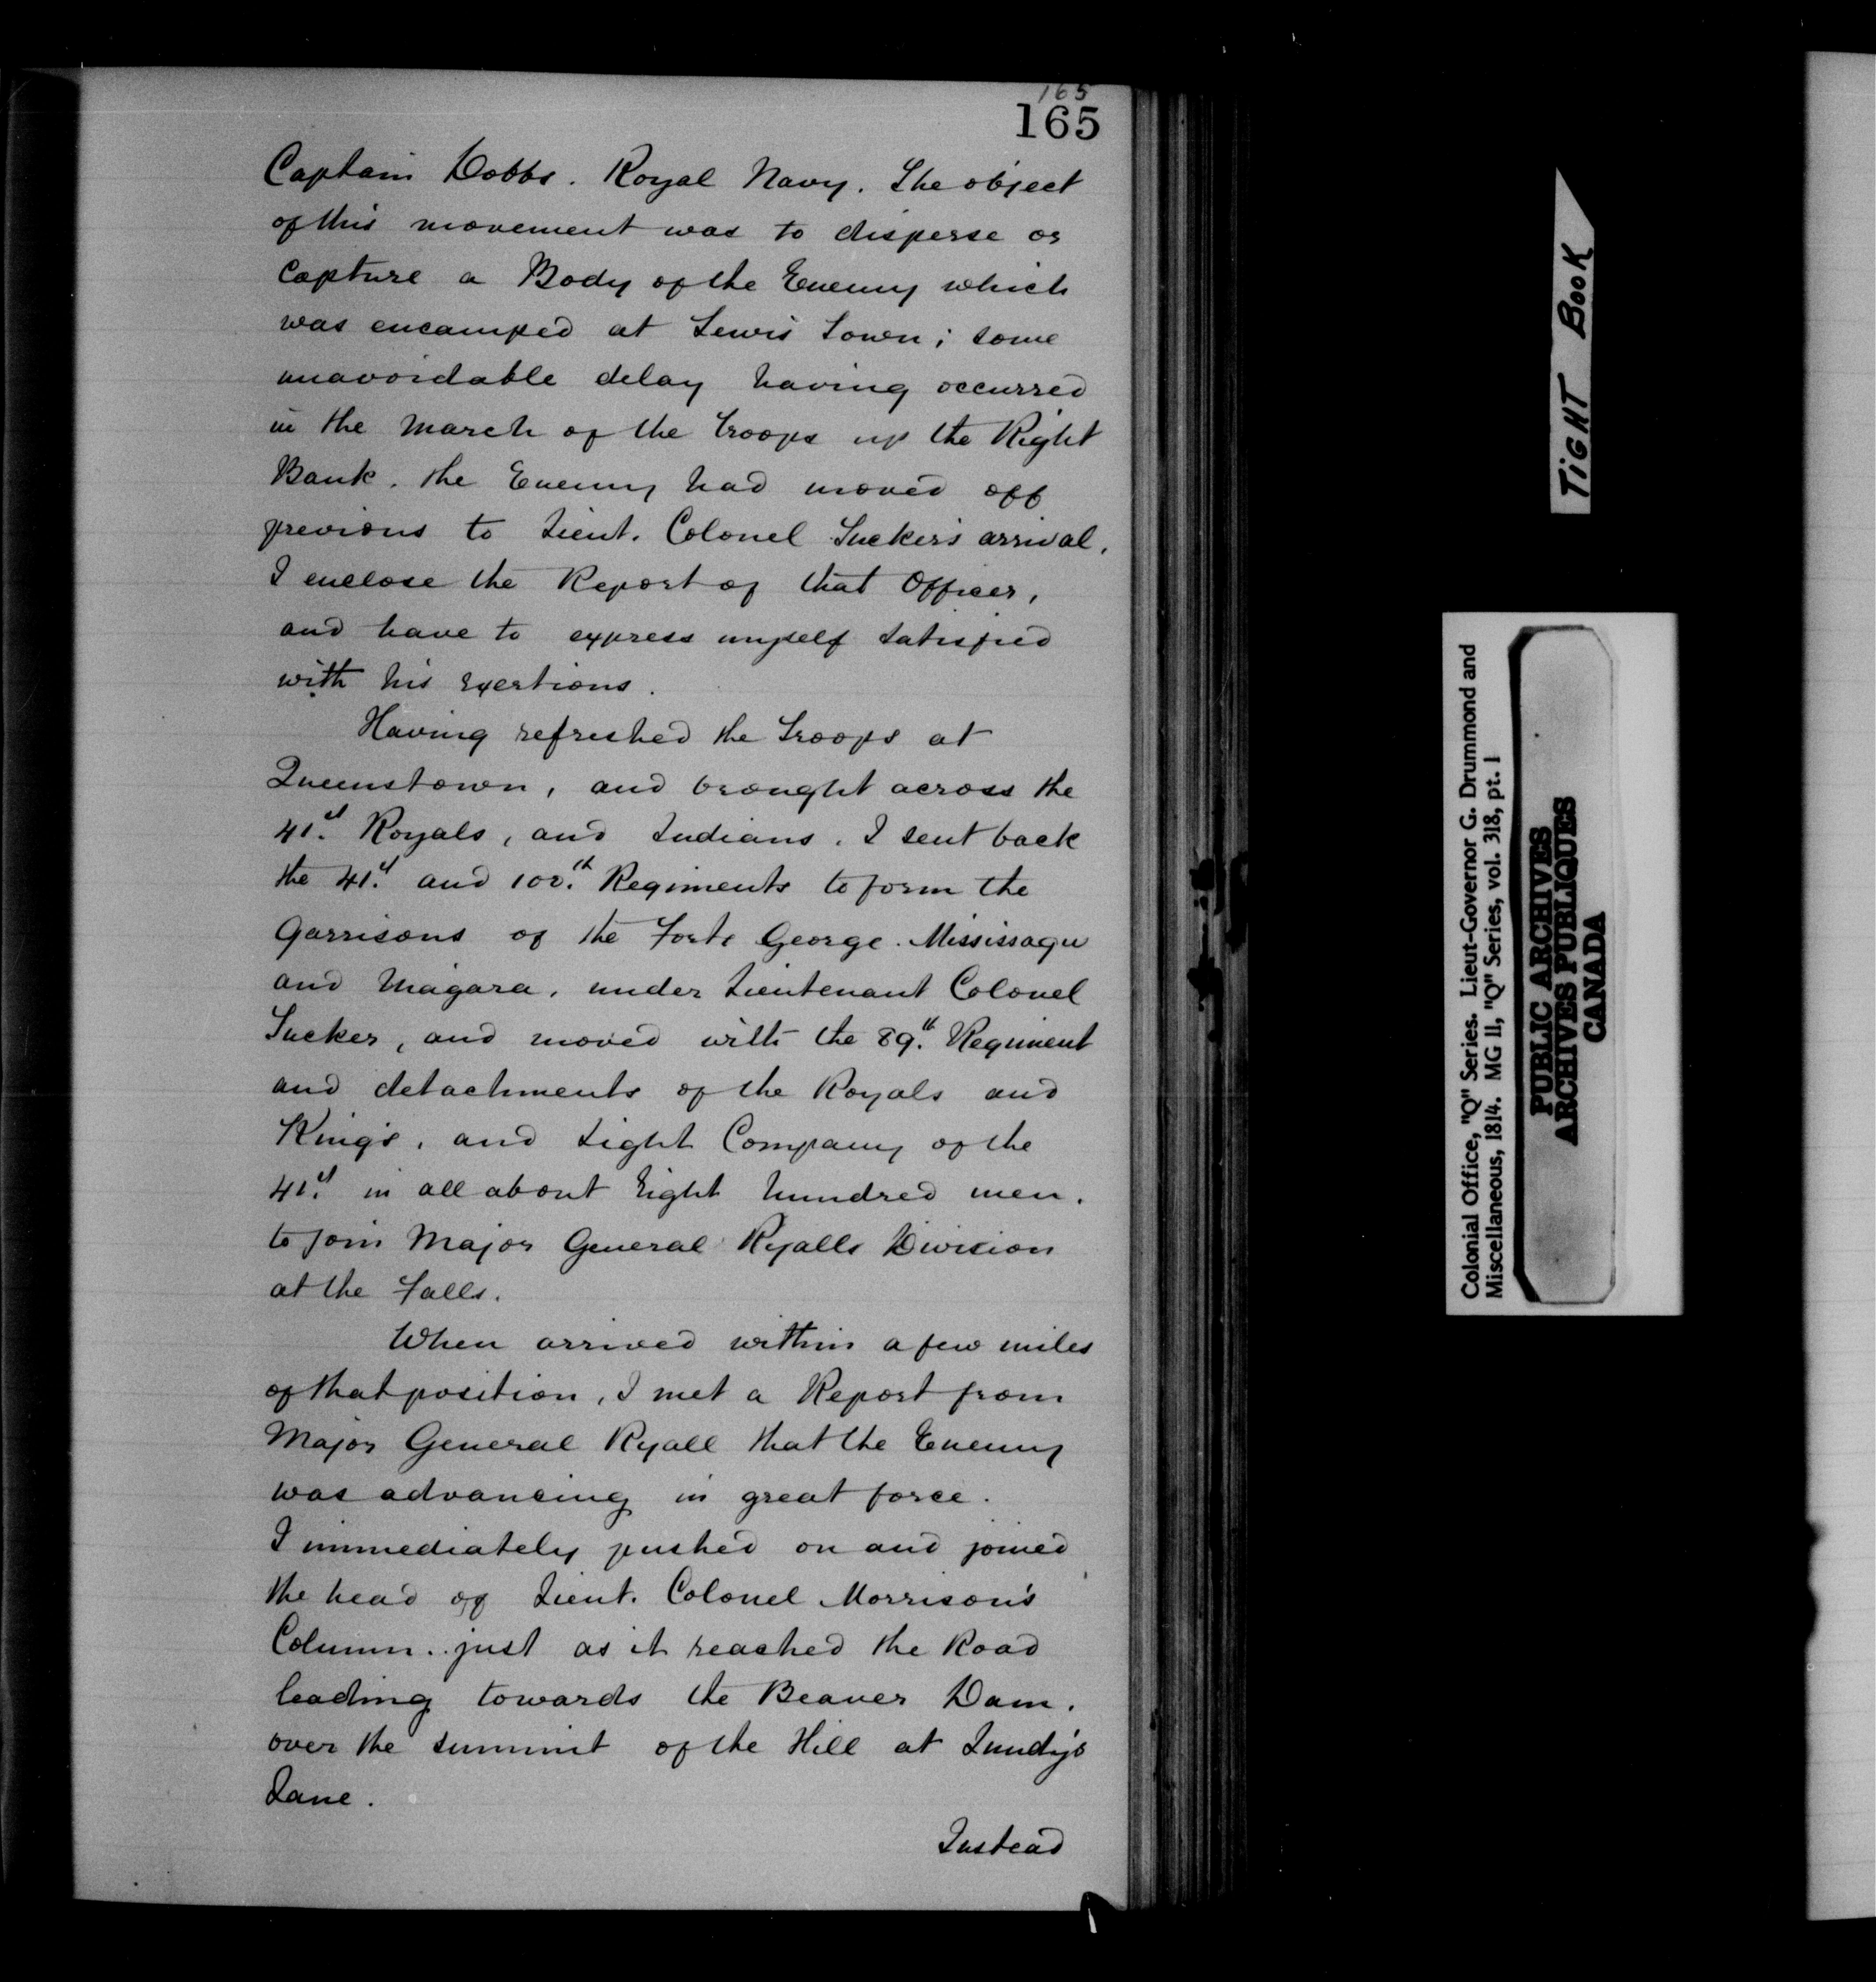 165
165
Captain Dobbs. Royal Navy. The object
of this movement was to disperse or
Capture a Body of the Enemy which
was encamped at Lewis Town; some
unavoidable delay having occurred
in the March of the troops up the Right
Bank. the Enemy had moved off
previous to Lieut. Colonel Tucker's arrival.
I enclose the Report of that Officer,
and have to express myself satisfied
with his exertions.
Having refreshed the Troops at
Queenstown, and brought across the
41st. Royals, and Indians. I sent back
the 41st. and 100.th Regiments to form the
Garrisons of the Forts George. Mississaga
and Niagara, under Lieutenant Colonel
Tucker, and moved with the 89.th Regiment
and detachments of the Royals and
King's, and Light Company of the
41st. in all about Eight hundred men.
to join Major General Ryalls Division
at the Falls.
When arrived within a few miles
of that position, I met a Report from
Major General Ryall that the Enemy
was advancing in great force.
I immediately pushed on and joined
the head of Lieut. Colonel Morrison's
Column. just as it reached the Road
leading towards the Beaver Dam.
over the summit of the Hill at Lundy's
Lane.
Instead
TIGHT BOOK
Colonial Office, "Q" Series. Lieut-Governor G. Drummond and
Miscellaneous, 1814. MG 11, "Q" Series, vol. 318, pt. 1
PUBLIC ARCHIVES
ARCHIVES PUBLIQUES
CANADA